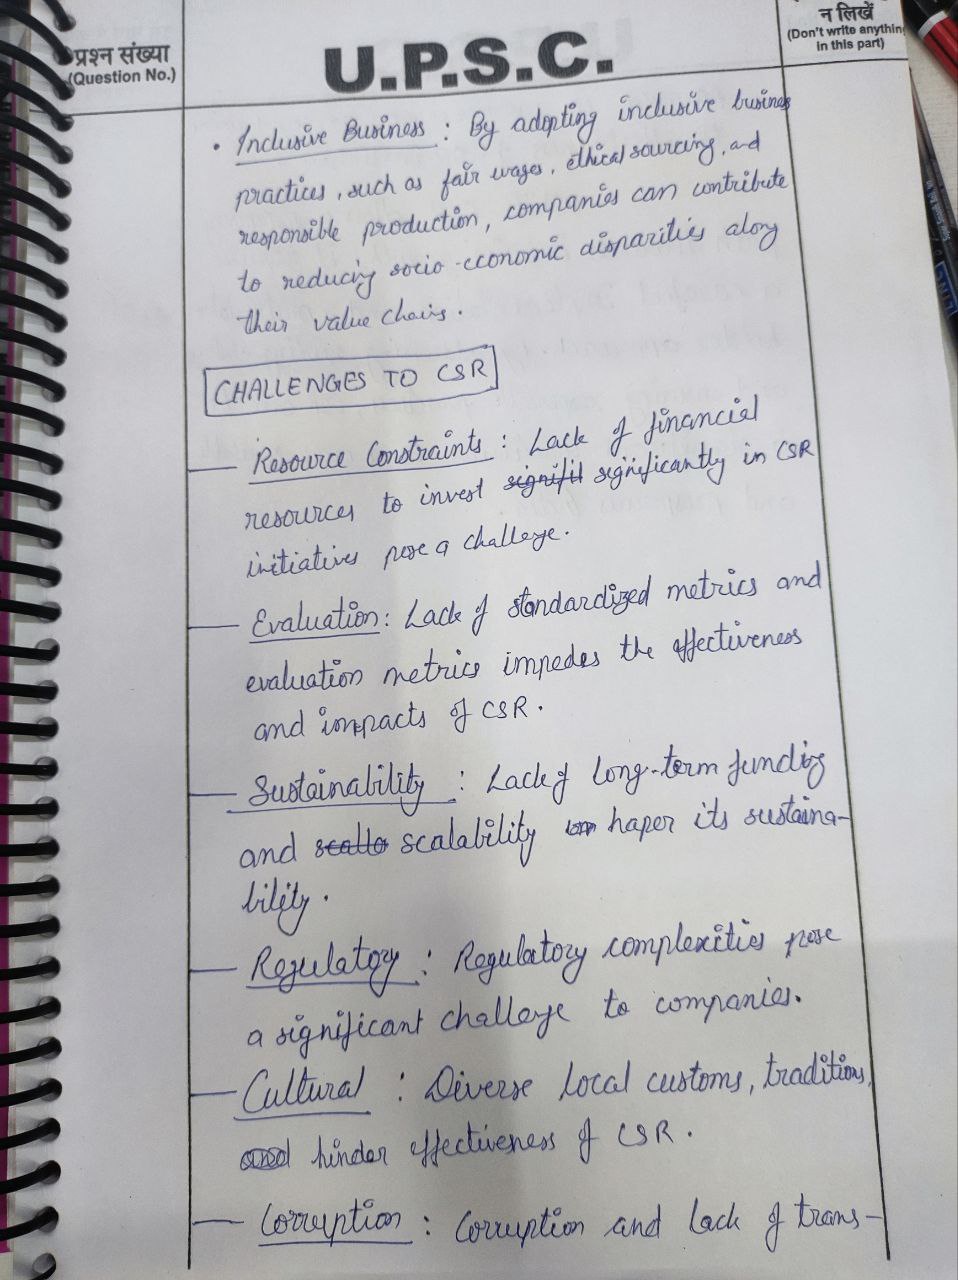 प्रश्न संख्या
(Question No.)
U.P.S.C.
न लिखें
(Don't write anything
in this part)
• Inclusive Business : By adopting inclusive business
practices, such as fair wages, ethical sourcing, and
responsible production, companies can contribute
to reducing socio-economic disparities along
their value chains.
CHALLENGES TO CSR
— Resource Constraints : Lack of financial
resources to invest significantly in CSR
initiatives pose a challenge.
— Evaluation : Lack of standardized metrics and
evaluation metrics impedes the effectiveness
and impacts of CSR.
— Sustainability : Lack of long-term funding
and scalability haper its sustaina-
bility.
— Regulatory : Regulatory complexities pose
a significant challenge to companies.
— Cultural : Diverse local customs, traditions,
hinder effectiveness of CSR.
— Corruption : Corruption and lack of trans-